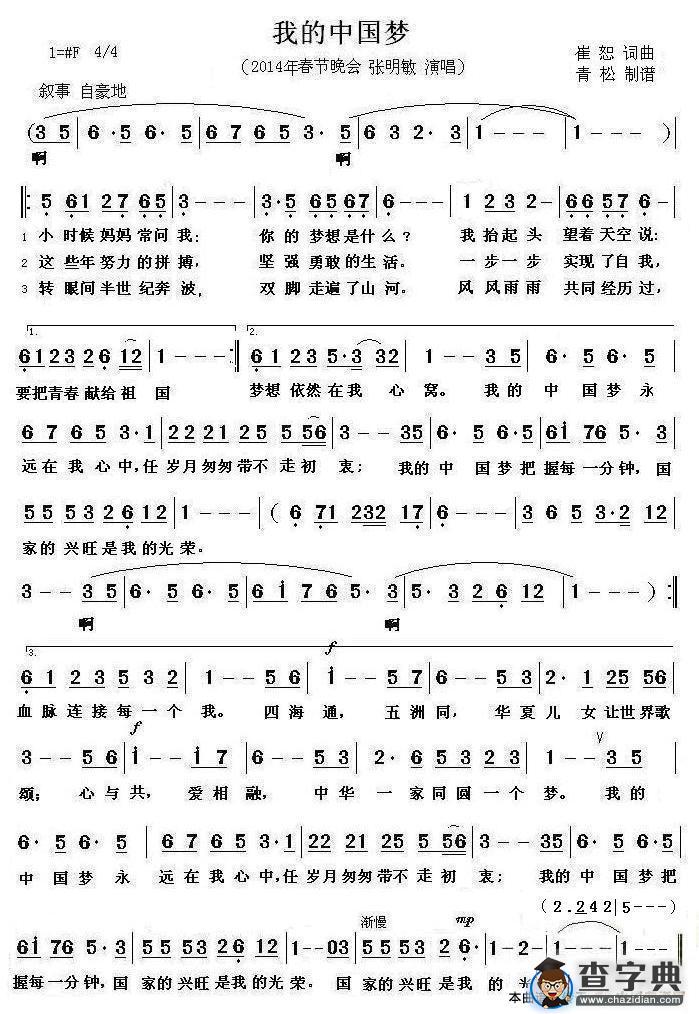 我的中国梦
1=#F 4/4
(2014年春节晚会 张明敏 演唱)
崔 恕 词曲
青 松 制谱
叙事 自豪地
(3 5 | 6 · 5 6 · 5 | 6 7 6 5 3 · | 5 · 6 3 2 · 3 | 1 - - - | 1 - - - )
啊 啊
‖: 5 6 1 2 7 6 5 | 3 - - - | 3 · 5 6 5 6 7 | 6 - - - | 1 2 3 2 - | 6 6 5 7 6 - |
1 小 时候 妈妈 常问 我: 你 的 梦想 是什 么? 我 抬 起 头 望着 天空 说:
2 这 些年 努力 的拼 搏, 坚 强 勇敢 的生 活。 一 步 一 步 实现 了自 我,
3 转 眼间 半世 纪奔 波, 双 脚 走遍 了山 河。 风 风 雨 雨 共同 经历 过,
1. 2.
6 1 2 3 2 6 12 | 1 - - - :‖ 6 1 2 3 5 · 3 32 | 1 - - 3 5 | 6 · 5 6 · 5 |
要把青春 献给 祖 国 梦想 依然 在我 心 窝。 我 的 中 国 梦 永
6 7 6 5 3 · 1 | 22 21 25 5 56 | 3 - - 35 | 6 · 5 6 · 5 | 61 76 5 · 3 |
远 在 我 心 中,任 岁月 匆匆 带不 走 初 衷; 我的 中 国 梦 把 握每 一分 钟,国
5 5 5 3 2 6 12 | 1 - - - | ( 6 71 232 17 | 6 - - - | 5 · 3 2 · 1 |
家的 兴旺 是我 的光 荣。
3 - - 3 5 | 6 · 5 6 · 5 | 6 1 7 6 5 · | 3 | 5 · 3 2 6 12 | 1 - - - ) :‖
啊 啊
3. f
6 1 2 3 5 3 2 | 1 - - 5 6 | 1 - - 5 7 | 6 - - 1 2 | 3 · 2 1 25 56 |
血 脉 连 接 每 一 个 我。 四 海 通, 五 洲 同, 华 夏 儿 女 让世 界歌
f V
3 - - 5 6 | 1 - - 1 7 | 6 - - 5 3 | 2 · 6 3 5 3 2 | 1 - - 3 5 |
颂; 心 与 共, 爱 相 融, 中 华 一 家 同 圆 一 个 梦。 我 的
6 · 5 6 · 5 | 6 7 6 5 3 · 1 | 22 21 25 5 56 | 3 - - 35 | 6 · 5 6 · 5 |
中 国 梦 永 远 在 我 心 中,任 岁月 匆匆 带不 走 初 衷; 我的 中 国 梦 把
渐慢 mp (2 . 2 4 2 | 5 - - - )
61 76 5 · 3 | 5 5 5 3 2 6 12 | 1 - - 03 | 5 5 5 3 2 6 · | 1 - 2 - | 1 - - - | 1 - - - ‖
握每 一分 钟,国 家的 兴旺 是我 的光 荣。 国 家的 兴旺 是我 的 光
本曲
查字典
www.chazidian.com